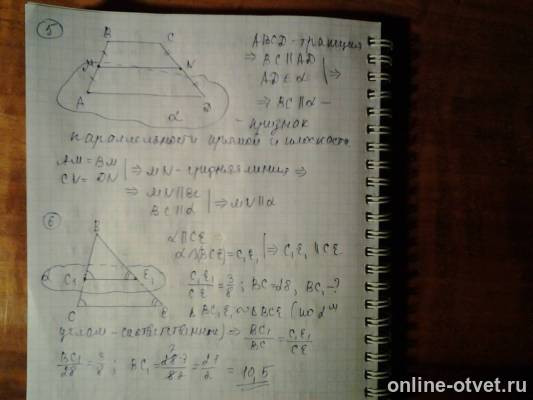 5
B C
M N
A D
α
ABCD - трапеция
⇒ BC || AD
AD ∈ α | ⇒
⇒ BC || α -
- признак
параллельности прямой и плоскости
AM = BM
CN = DN | ⇒ MN - средняя линия ⇒
⇒ MN || BC
BC || α | ⇒ MN || α
6
B
α C₁ E₁
C E
α || CE
α ∩ (BCE) = C₁E₁ | ⇒ C₁E₁ || CE
C₁E₁/CE = 3/8 ; BC = 28, BC₁ - ?
Δ BC₁E₁ ∾ Δ BCE (по 2ᵐ
углам - соответственные) ⇒ BC₁/BC = C₁E₁/CE
BC₁/28 = 3/8 ; BC₁ = 28·3/8 = 21/2 = 10,5
online-otvet.ru